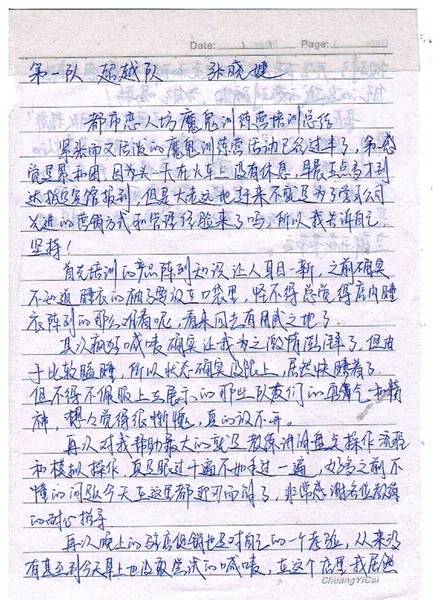 Date: Page:
第一队 超越队 张晓婕
都市恋人坊魔鬼训练营培训总结
紧张而又活泼的魔鬼训练营活动已经过半了，第一感
觉是累和困，因为头一天在火车上没有休息，早晨五点多才到
达指定宾馆报到，但是大老远地赶来不就是为了学习公司
先进的营销方式和管理经验来了吗，所以我告诉自己
坚持！
首先培训的产品陈列知识让人耳目一新，之前确实
不知道睡衣的袖子要放在口袋里，怪不得总觉得店内睡
衣陈列的那么难看呢，看来回去有用武之地了。
其次极好喊麦确实让我为之激情澎湃了，但由
于比较瞌睡，所以状态确实没跟上，居然快睡着了
但不得不佩服上去展示的那些队友们的勇气和精
神，想想觉得很惭愧，真的放不开。
再次对我帮助最大的就是教练讲的盘点操作流程
和模拟操作，真是眼过十遍不如手过一遍，好多之前不
懂的问题今天在这里都迎刃而解了，非常感谢各位教练
的耐心指导
再次晚上的驻店促销也是对自己的一个考验，从来没
有甚至到今天早上也没敢尝试的喊麦，在这个店里我居然
ChuangYiCai